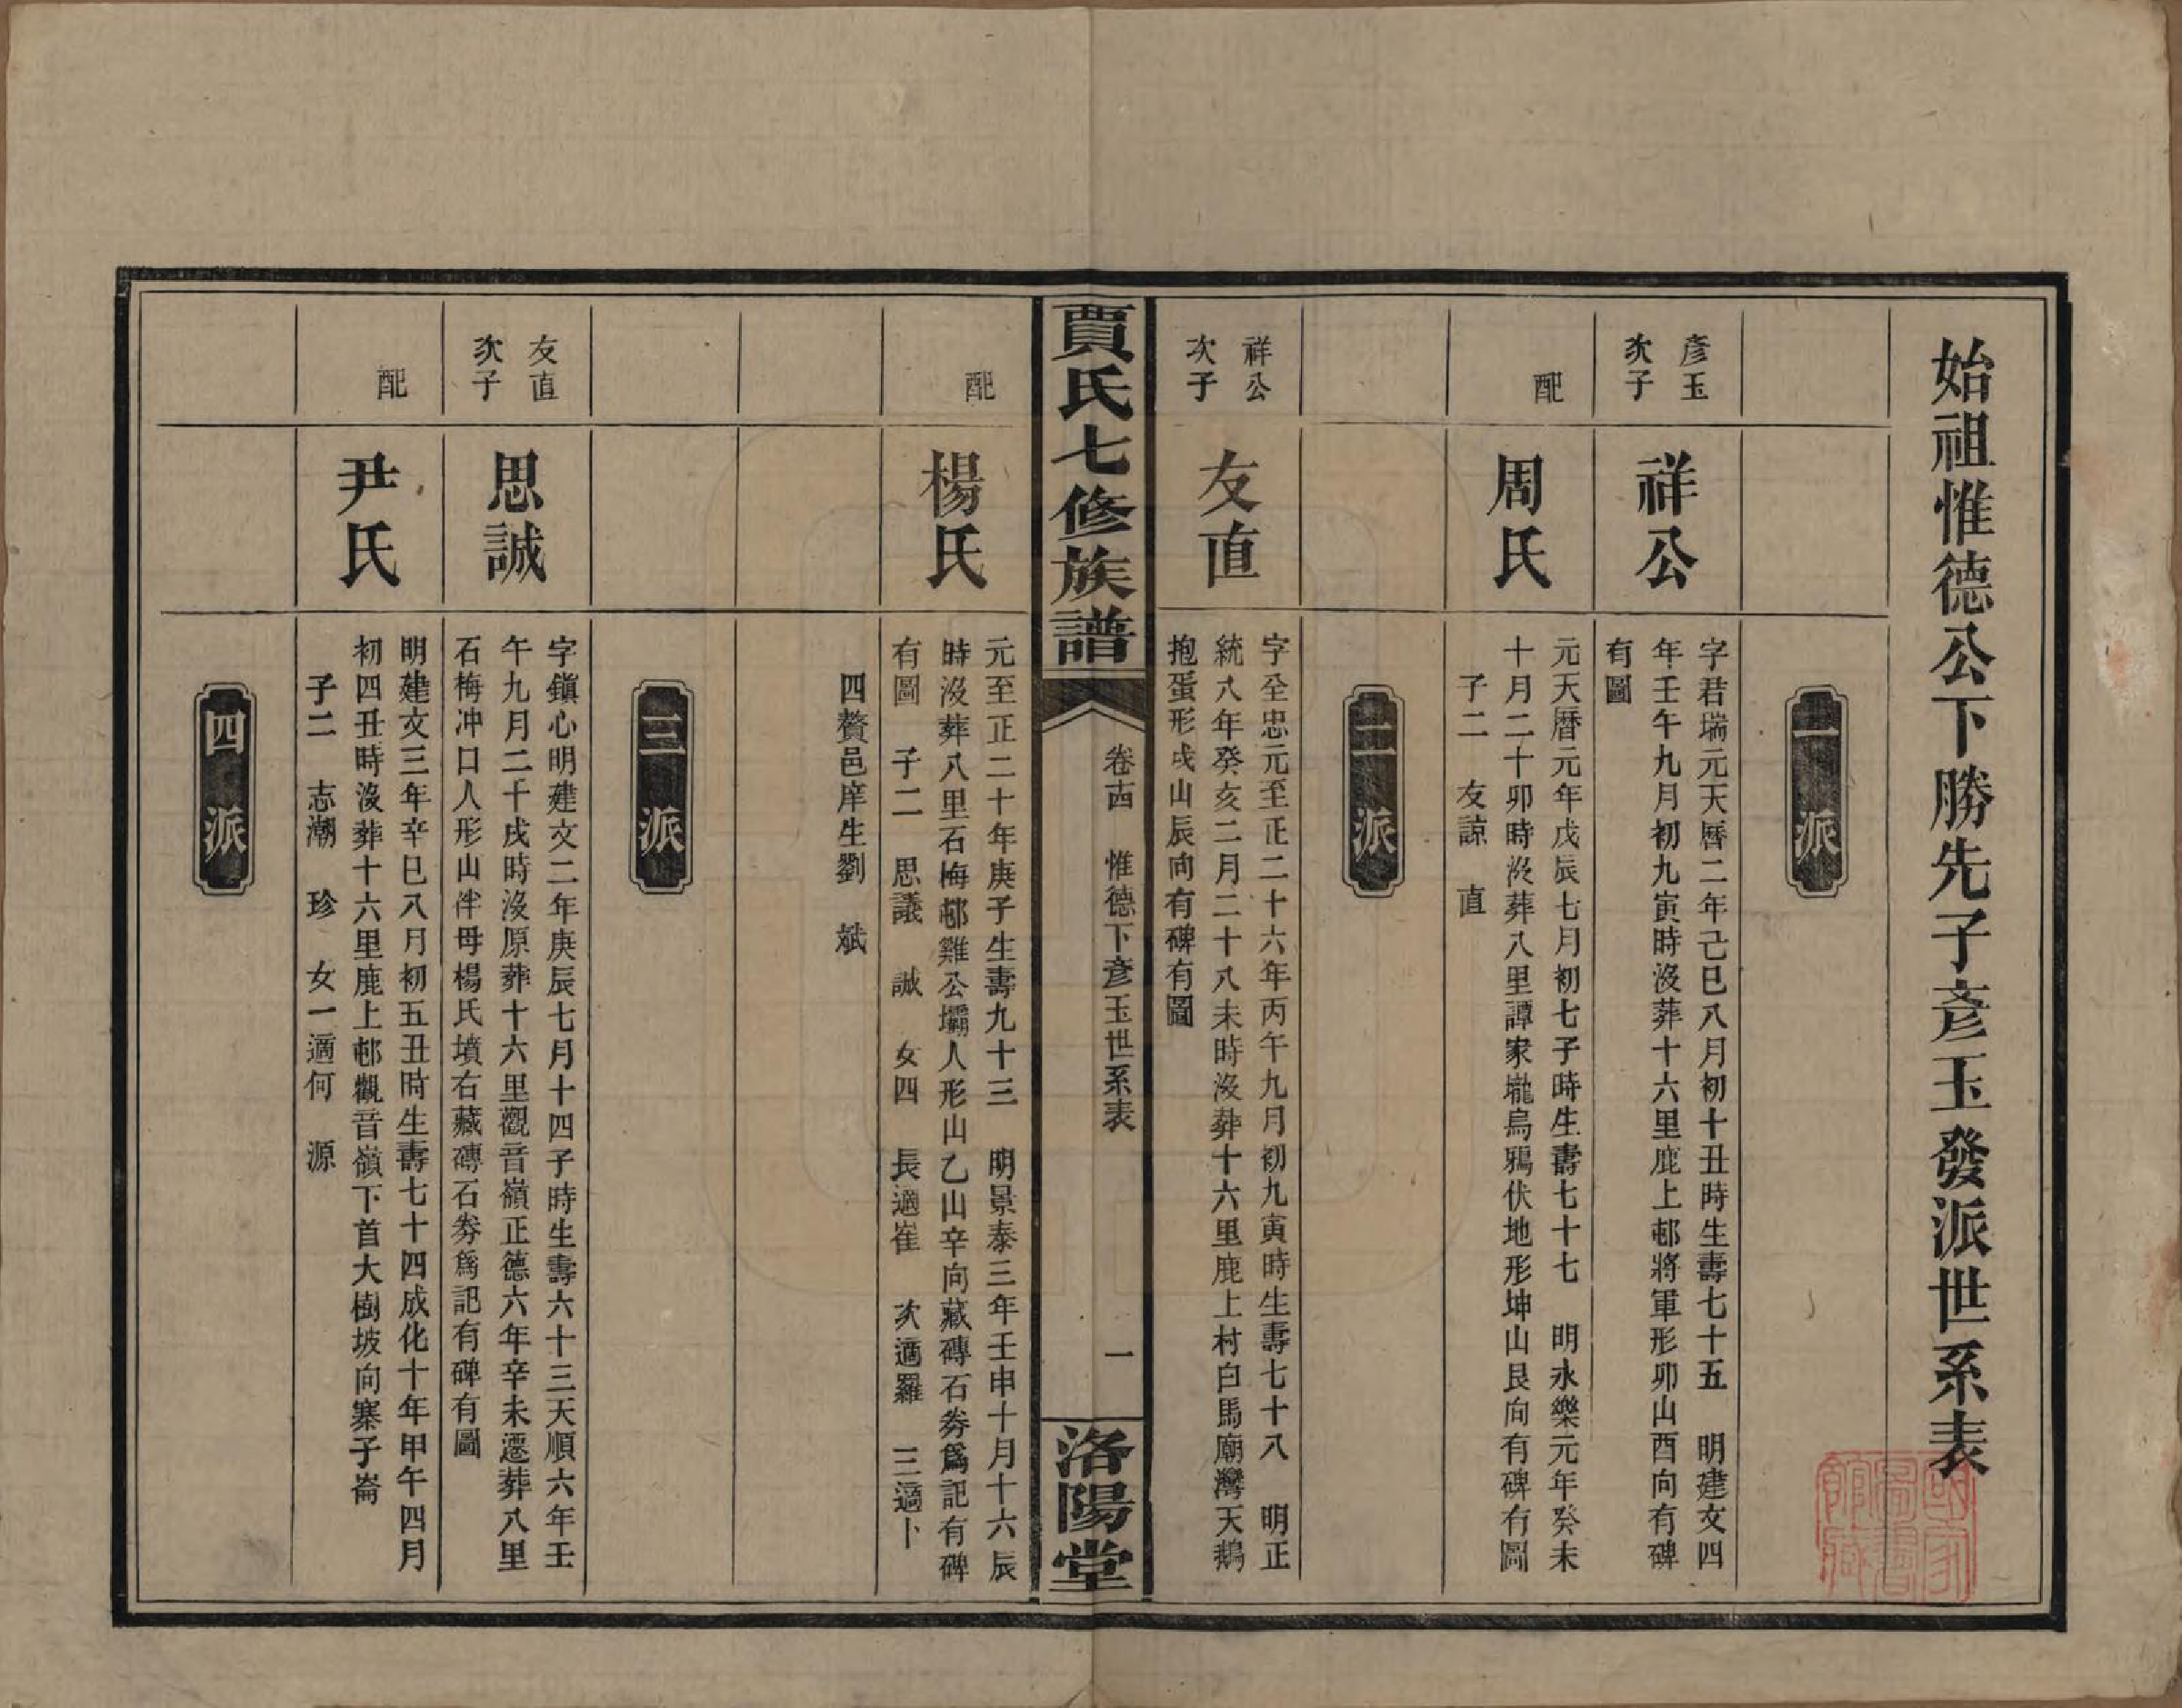 始祖惟德公下勝先子彥玉發派世系表
一派
彥玉
次子
祥公
字君瑞元天曆二年己巳八月初十丑時生壽七十五 明建文四
年壬午九月初九寅時沒葬十六里鹿上邨將軍形卯山酉向有碑
有圖
配
周氏
元天曆元年戊辰七月初七子時生壽七十七 明永樂元年癸未
十月二十卯時沒葬八里譚家壠烏鴉伏地形坤山艮向有碑有圖
子二 友諒 直
二派
祥公
次子
友直
字全忠元至正二十六年丙午九月初九寅時生壽七十八 明正
統八年癸亥二月二十八未時沒葬十六里鹿上村白馬廟灣天鵝
抱蛋形戌山辰向有碑有圖
賈氏七修族譜
卷西 惟德下彥玉世系表
一
洛陽堂
配
楊氏
元至正二十年庚子生壽九十三 明景泰三年壬申十月十六辰
時沒葬八里石梅邨雞公壩人形山乙山辛向藏磚石券爲記有碑
有圖 子二 思議 誠 女四 長適崔 次適羅 三適卜
四贅邑庠生劉 斌
三派
友直
次子
思誠
字鎭心明建文二年庚辰七月十四子時生壽六十三天順六年壬
午九月二十戌時沒原葬十六里觀音嶺正德六年辛未遷葬八里
石梅冲口人形山伴母楊氏墳右藏磚石券爲記有碑有圖
配
尹氏
明建文三年辛巳八月初五丑時生壽七十四成化十年甲午四月
初四丑時沒葬十六里鹿上邨觀音嶺下首大樹坡向寨子崙
子二 志潮 珍 女一適何 源
四派
國家
圖書
館藏